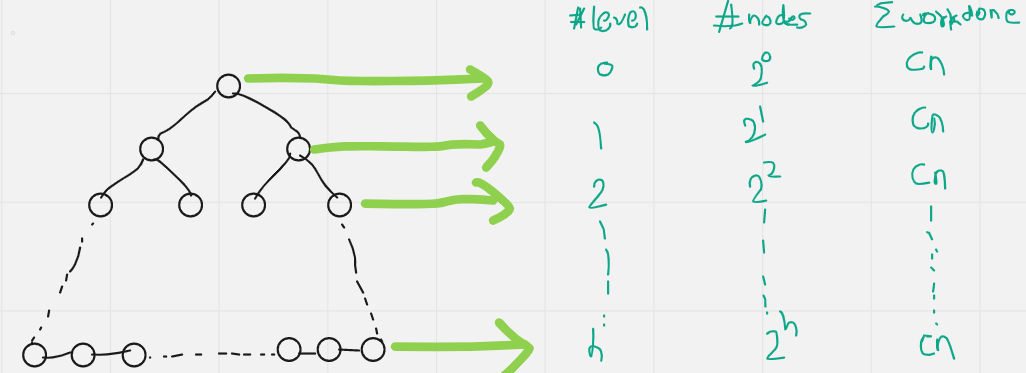 #level #nodes Σworkdone
0 2⁰ cn
1 2¹ cn
2 2² cn
h 2ʰ cn